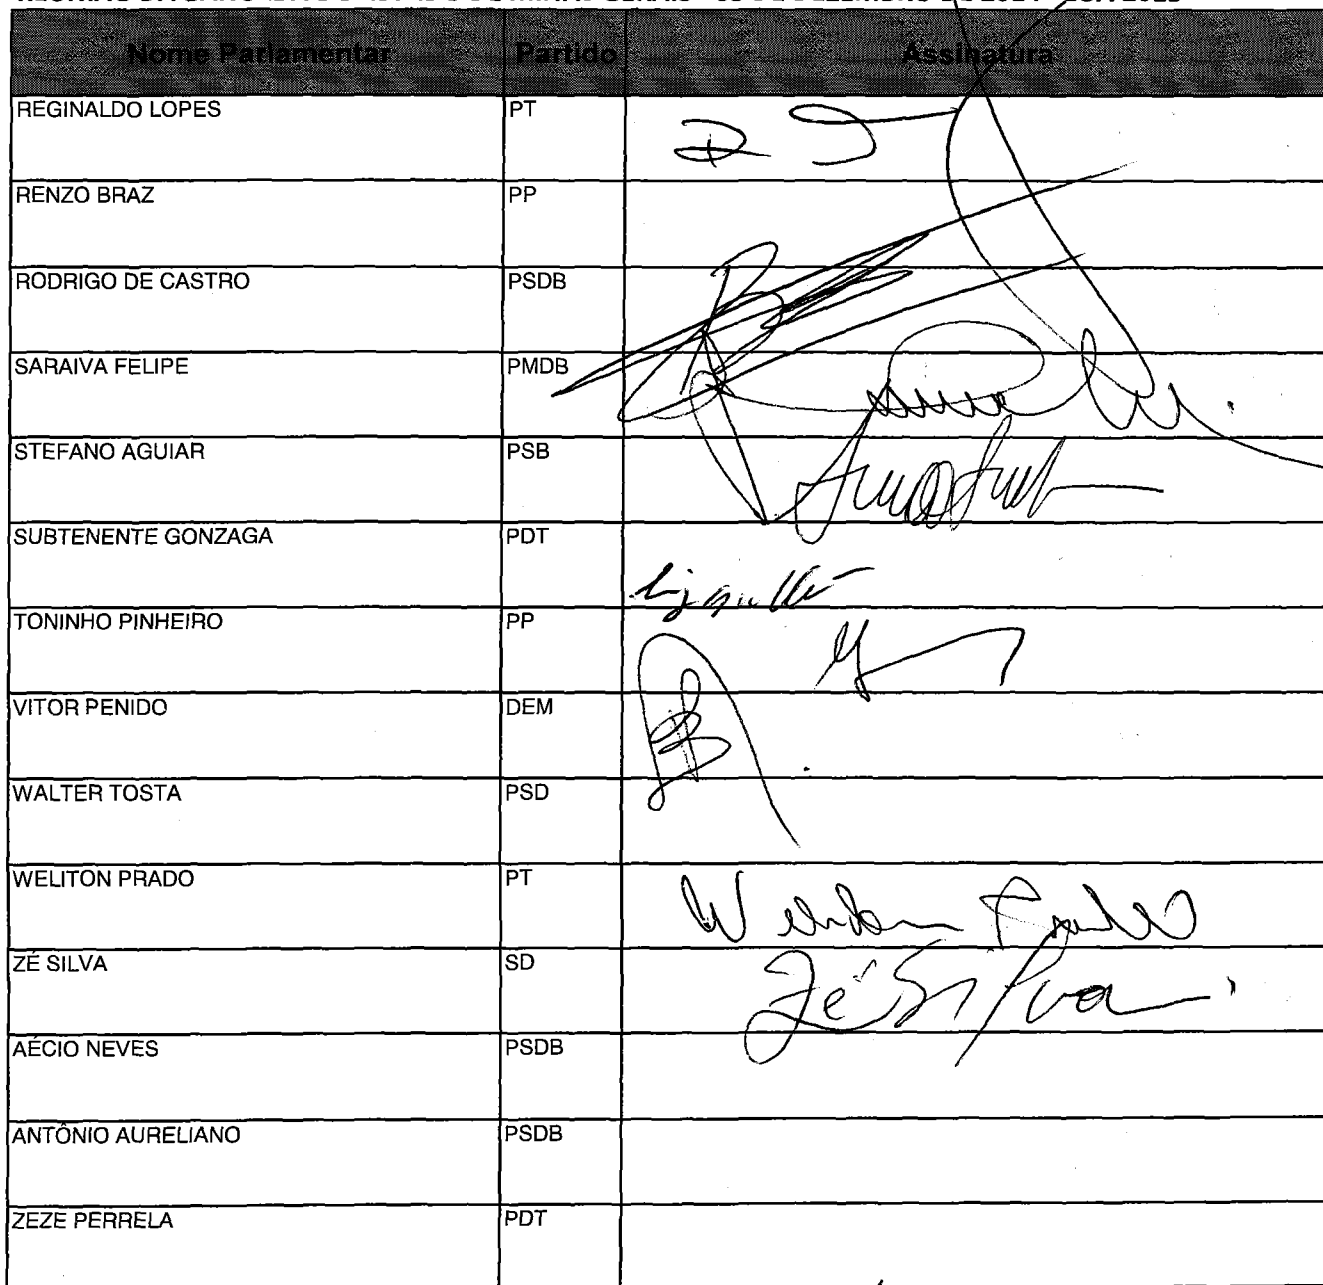 Nome Parlamentar Partido Assinatura
REGINALDO LOPES PT
RENZO BRAZ PP
RODRIGO DE CASTRO PSDB
SARAIVA FELIPE PMDB
STEFANO AGUIAR PSB
SUBTENENTE GONZAGA PDT
TONINHO PINHEIRO PP
VITOR PENIDO DEM
WALTER TOSTA PSD
WELITON PRADO PT Weliton Prado
ZÉ SILVA SD Zé Silva
AÉCIO NEVES PSDB
ANTÔNIO AURELIANO PSDB
ZEZE PERRELA PDT